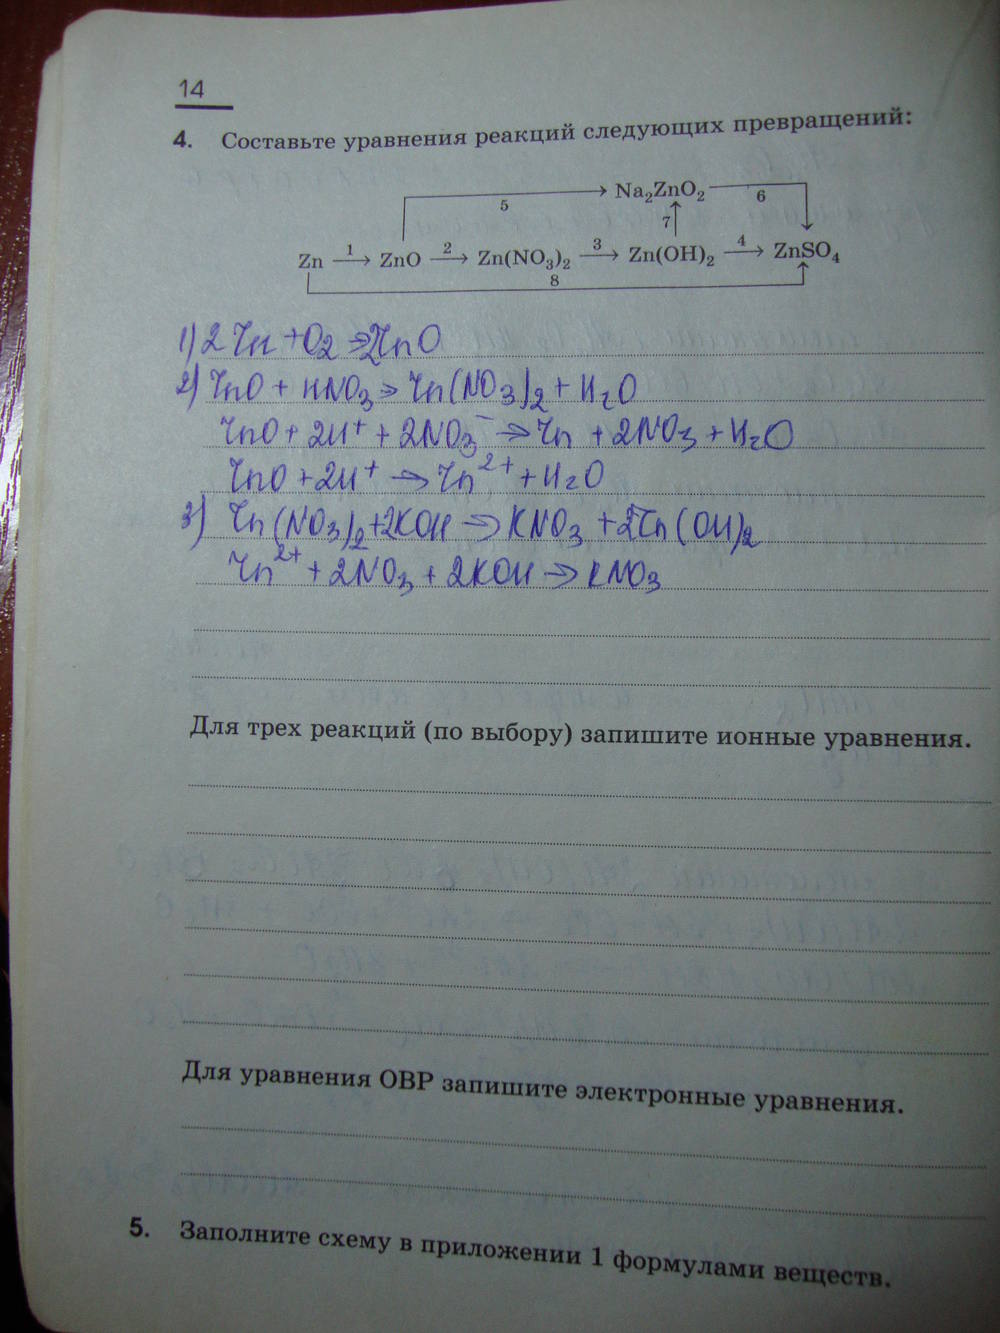 14
4. Составьте уравнения реакций следующих превращений:
5 Na₂ZnO₂ 6
7
Zn 1→ ZnO 2→ Zn(NO₃)₂ 3→ Zn(OH)₂ 4→ ZnSO₄
8
1) 2Zn + O₂ → 2ZnO
2) ZnO + HNO₃ → Zn(NO₃)₂ + H₂O
ZnO + 2H⁺ + 2NO₃⁻ → Zn + 2NO₃ + H₂O
ZnO + 2H⁺ → Zn²⁺ + H₂O
3) Zn(NO₃)₂ + 2KOH → KNO₃ + 2Zn(OH)₂
Zn²⁺ + 2NO₃ + 2KOH → KNO₃
Для трех реакций (по выбору) запишите ионные уравнения.
Для уравнения ОВР запишите электронные уравнения.
5. Заполните схему в приложении 1 формулами веществ.